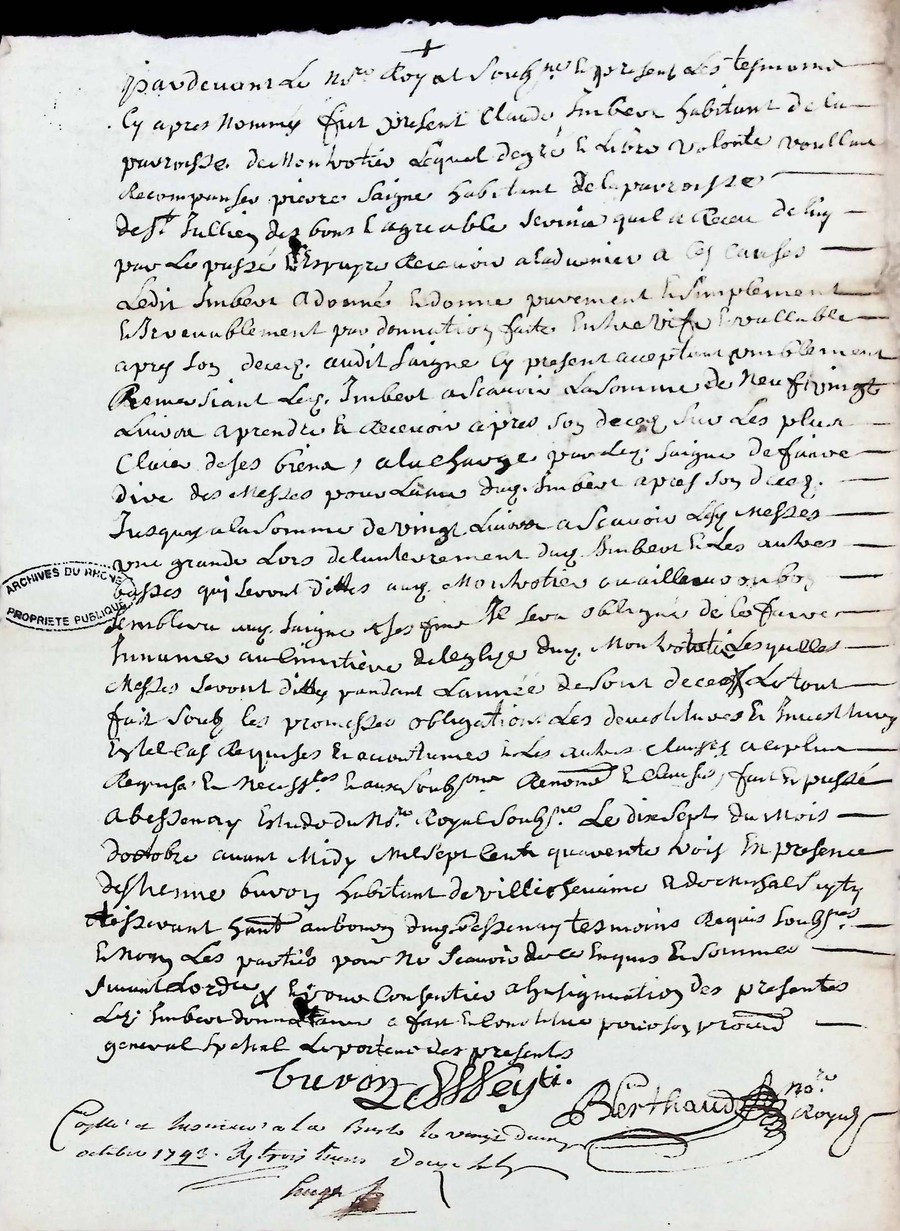 +
pardevant Le No.re Royal Soub.ne Et present Les tesmoins
Cy apres Nommés fut present Claude Imbert habitant de la
parroisse de Montrotier Lequel de gré Et Libre volonte voullant
Recompanser pierre Saigne habitant de la parroisse
de St. Jullien des bons Et agreable Service quil a Receu de luy
par Le passé Et Espere Recevoir a Ladvenier a Ces Causes
Ledit Imbert a donné Et donne purement Et Simplement
Et Irrevocablement par donnation faite Entre vifs Et vallable
apres son decez audit Saigne Cy present acceptant humblement
Remersiant Led. Imbert a Scavoir La Somme de Neuf vingt
Livres a prendre Et Recevoir apres Son decez Sur Les plus
Claier de ses biens, a la charge par Led. Saigne de faire
dire des Messes pour Lame dud. Imbert apres Son decez
Jusques a la Somme de vingt Livres a Scavoir Lesd. Messes
une grande Lors de Lenterrement dud. Imbert Et Les autres
basses qui Seront dittes aud. Montrotier ou ailleurs ou bon
Semblera aud. Saigne Il Sera obligé de le faire
Innumer au Cimitière de leglize dud. Montrotie Lesquelles
Messes Seront dittes pandant L'année de Sont decex Le tout
fait Soub les promesses obligations Les devestitures Et Investitures
En tel Cas Requises Et accoutumes Et Les autres Clauses a ce plus
Requise Et Necess.res Soub Renon Et Clauses, fait Et passé
a bessenay Estude du No.re Royal Soub.ne Le dix Sept du Mois
doctobre avant Midy Mil Sept Cent quarente trois En presence
destienne buron habitant de villechenève Et de
tisserant hant. au bourg dud. bessenay tesmoins Requis Soub.nes
Et Non Les parties pour Ne Scavoir de ce Enquis Et Sommes
Suivant Lordce Et pour Consentir a Linsignuation des presentes
Led. Imbert a fait Et Constitue pour son procur
general Spetial Le porteur des presentes
buron
Berthaud No.re Royal
ARCHIVES DU RHONE
PROPRIETE PUBLIQUE
Et Insinué a La Le vingt
octobre 1743. trois